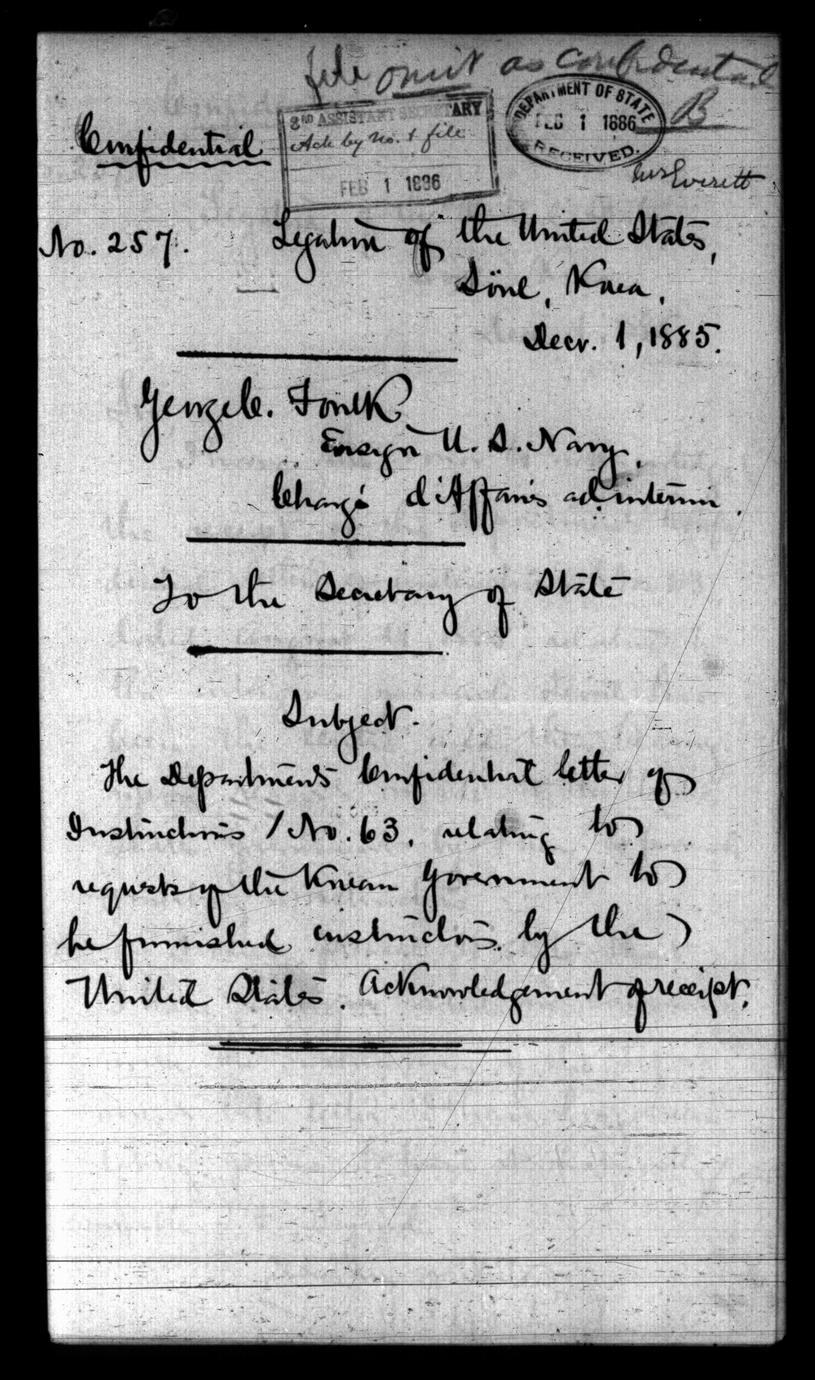 file omit as confidential
B
2ND ASSISTANT SECRETARY
Ack by no. & file
FEB 1 1886
DEPARTMENT OF STATE
FEB 1 1886
RECEIVED.
Confidential
Everett
No. 257.
Legation of the United States,
Söul, Korea,
Decr. 1, 1885.
George C. Foulk
Ensign U. S. Navy,
Chargé d'Affaires ad interim.
To the Secretary of State
Subject.
The Department's Confidential letter of
Instructions / No. 63, relating to
requests of the Korean Government to
be furnished instructors by the
United States. Acknowledgement of receipt.